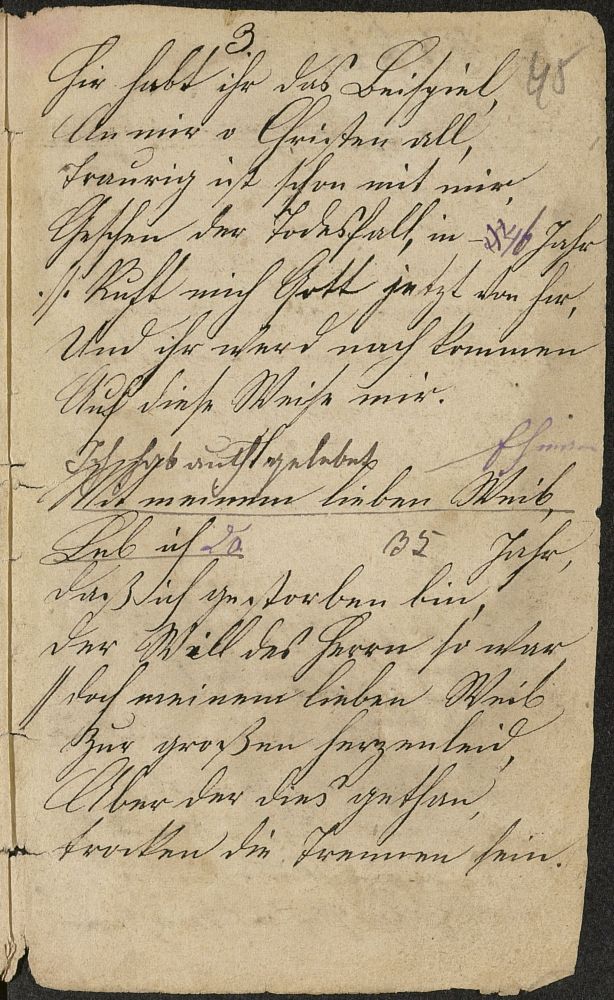 3
45
Hir habt ihr das Beispiel,
An mir o Christen all,
Traurig ist schon mit mir
Geschen der Todesfall, in 46 Jahr
./. Ruft mich Gott jetzt von hir,
Und ihr werd nach kommen
Auf diese Weise mir.
Ich hab gelebet
Mit meinem lieben Weib,
Leb ich 20 35 Jahr,
daß ich gestorben bin,
Der Will des Herrn so war
// doch meinem lieben Weib
Zur großen Herzenleid,
Aber der dies gethan,
trocken die Trennen sein.